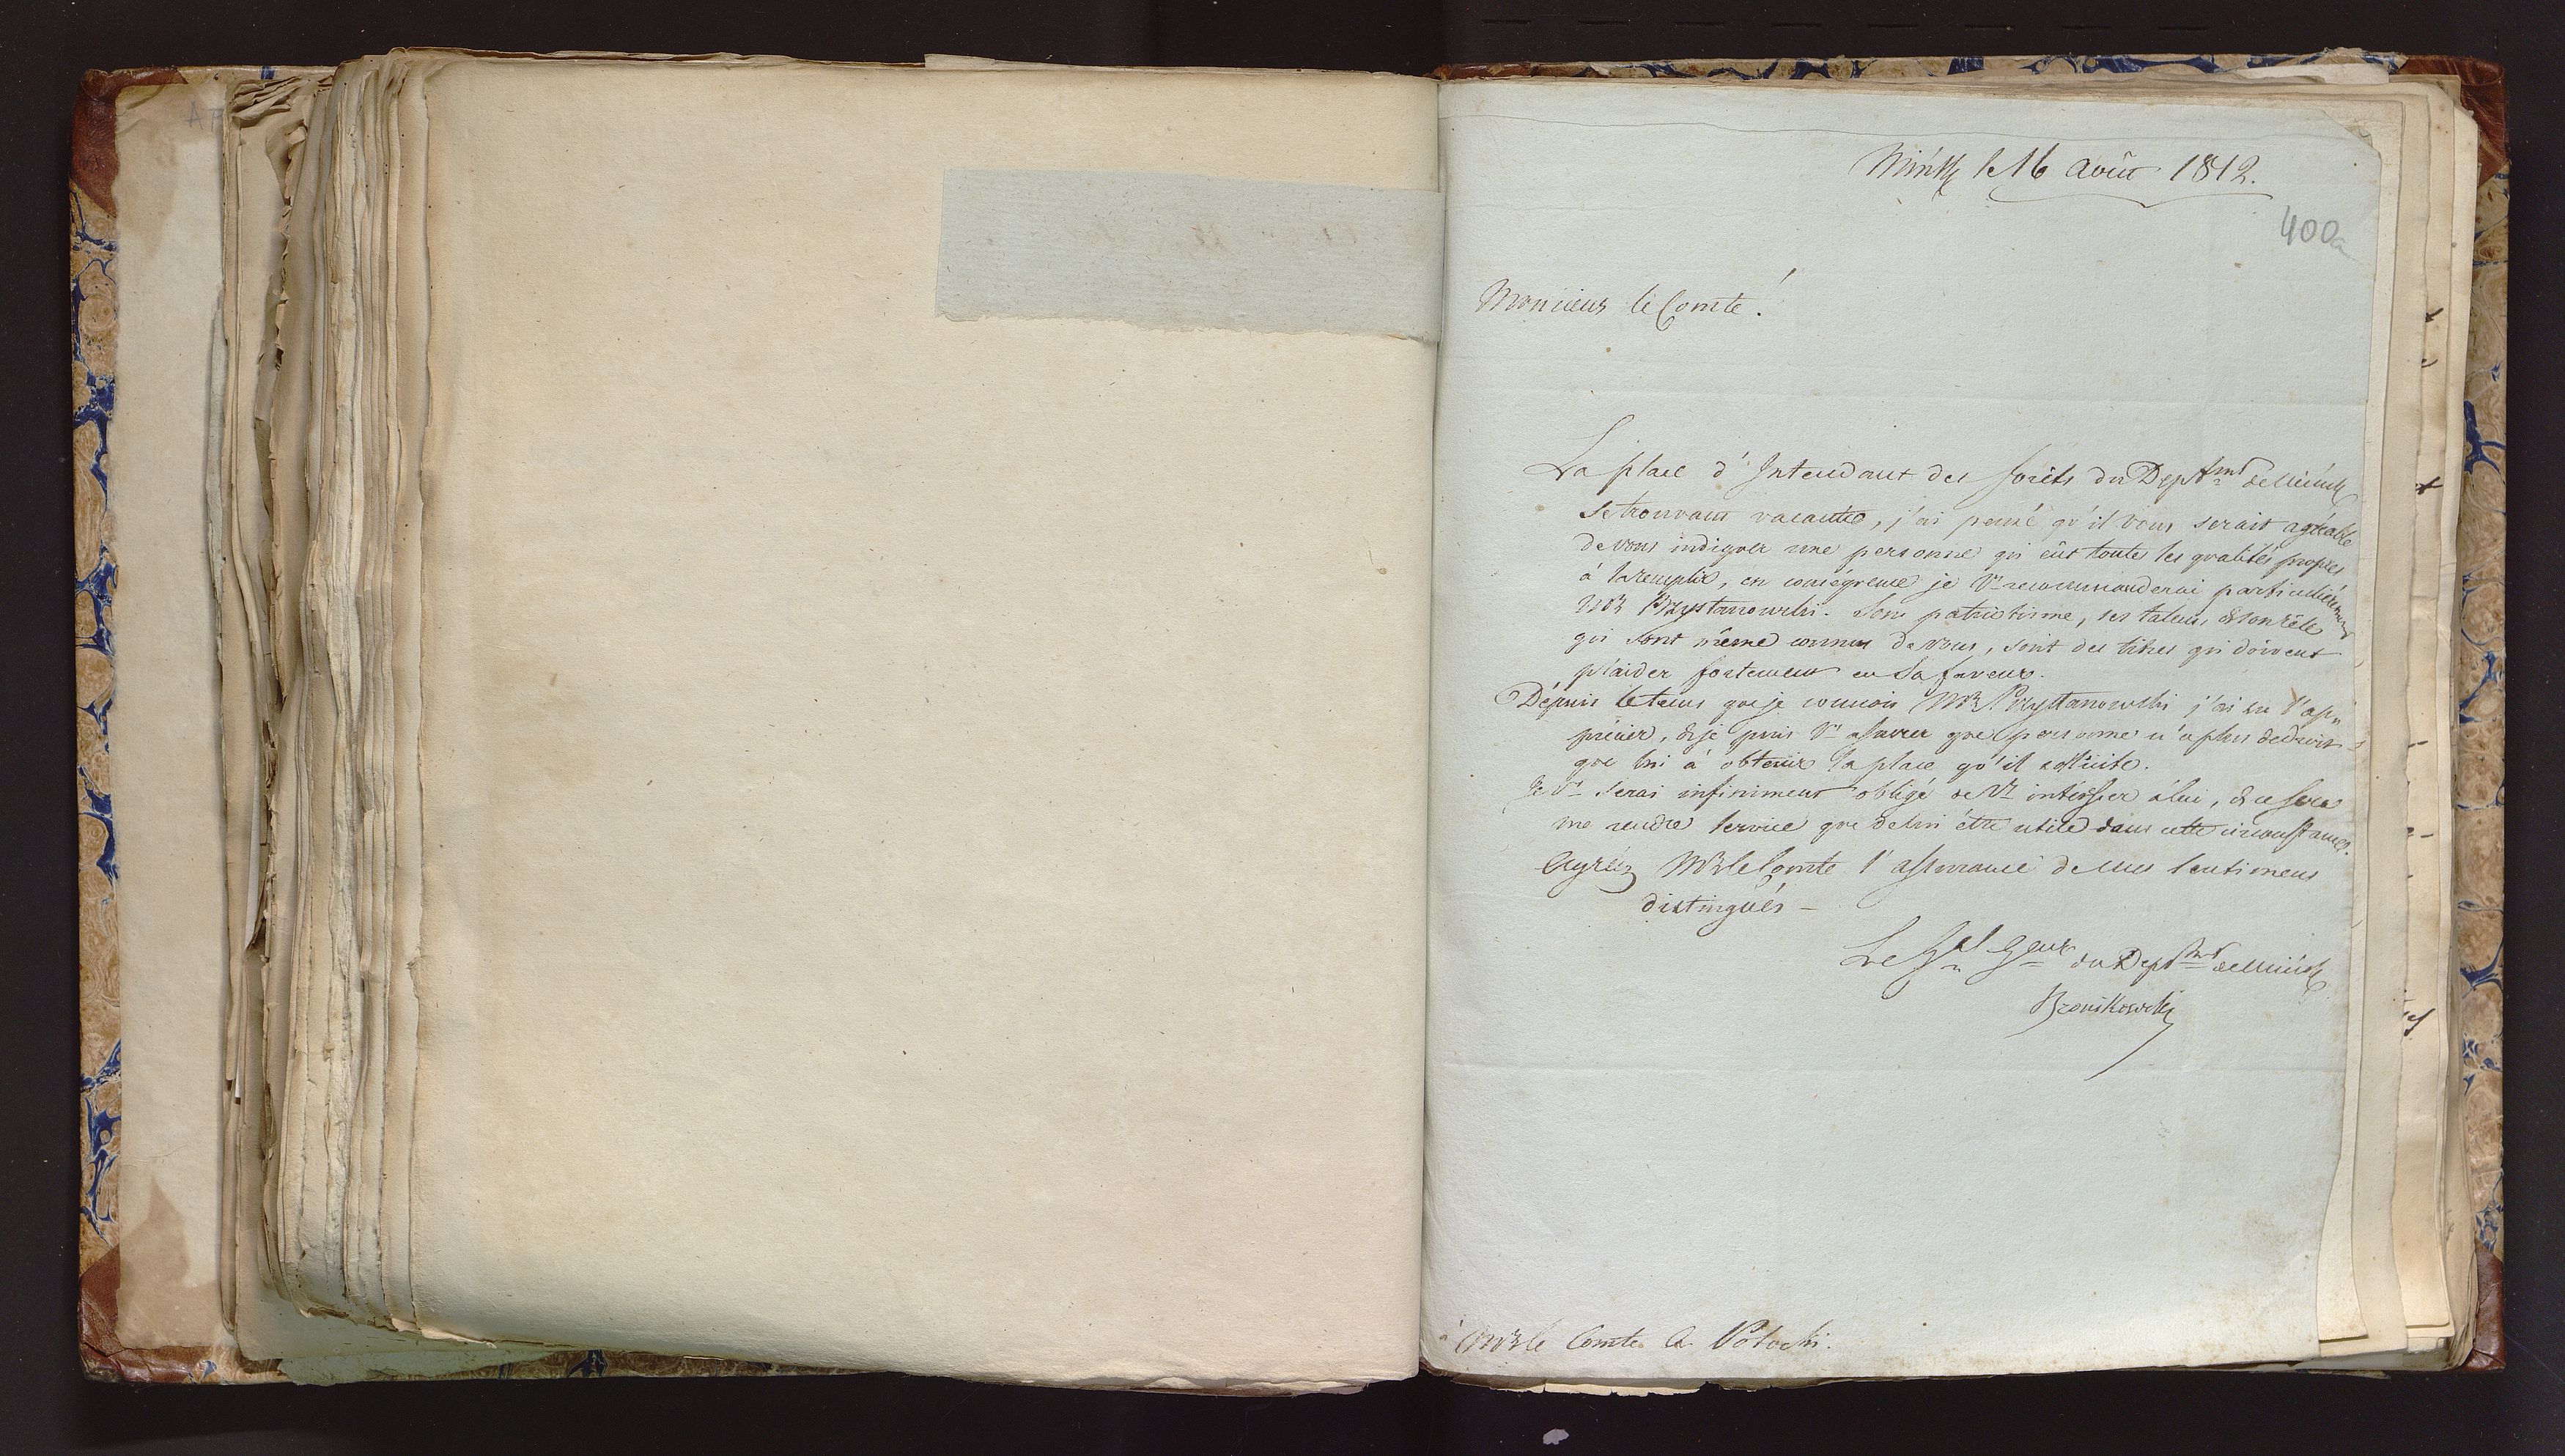 Minsk le 16 août 1812.
400a
Monsieur le Comte!
La place d'Intendant des forêts du Deptmt de Minsk
se trouvant vacante, j'ai pensé qu'il vous serait agréable
de vous indiquer une personne qui eût toutes les qualités propres
à la remplir, en conséquence je Vs recommanderai particulièrement
Mr Przystanowski. Son patriotisme, ses talens, & son zêle
qui sont même connus de vous, sont des titres qui doivent
plaider fortement en sa faveur.
Dépuis le tems que je connois Mr Przystanowski j'ai su l'ap„
précier, & je puis Vs assurer que personne n'a plus de droit
que lui à obtenir la place qu'il sollicite.
Je Vs serai infiniment obligé de Vs intéresser à lui, & ce sera
me rendre service que de lui être utile dans cette circonstance.
Agréez Mr le Comte l'assurance de mes sentimens
distingués –
Le Gal Gour du Deptmt de Minsk
Bronikowski
à Mr le Comte A. Potocki.